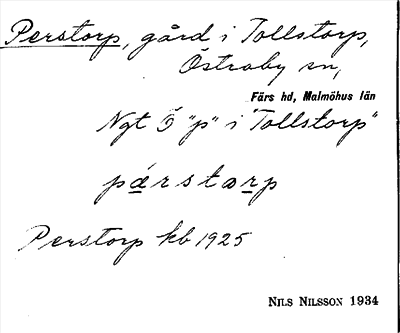 Perstorp, gård i Tollstorp,
Östraby sn,
Färs hd, Malmöhus län
Ngt Ö "p" i "Tollstorp"
pærstɔrp
Perstorp kb 1925
NILS NILSSON 1934